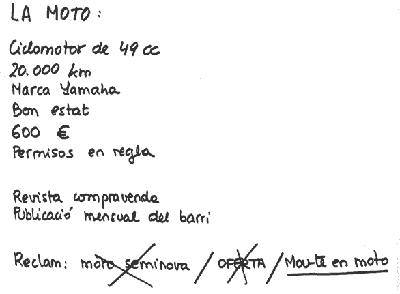 LA MOTO:
Ciclomotor de 49 cc
20.000 km
Marca Yamaha
Bon estat
600 €
Permisos en regla
Revista compravenda
Publicació mensual del barri
Reclam: moto seminova / OFERTA / Mou-te en moto